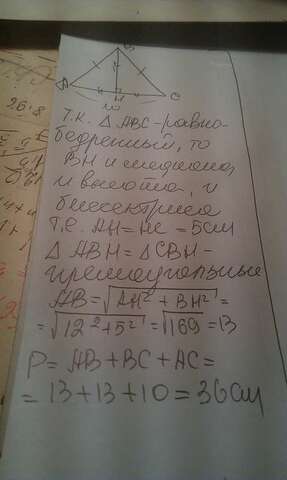 B
A
H
C
10
Т.К. △ABC-равно-
бедренный, то
BH и медиана,
и высота, и
биссектриса
Т.Е. AH = HC = 5см
△ABH = △CBH -
прямоугольные
AB = √AH² + BH² =
= √12² + 5² = √169 = 13
P = AB + BC + AC =
= 13 + 13 + 10 = 36 см
26:8